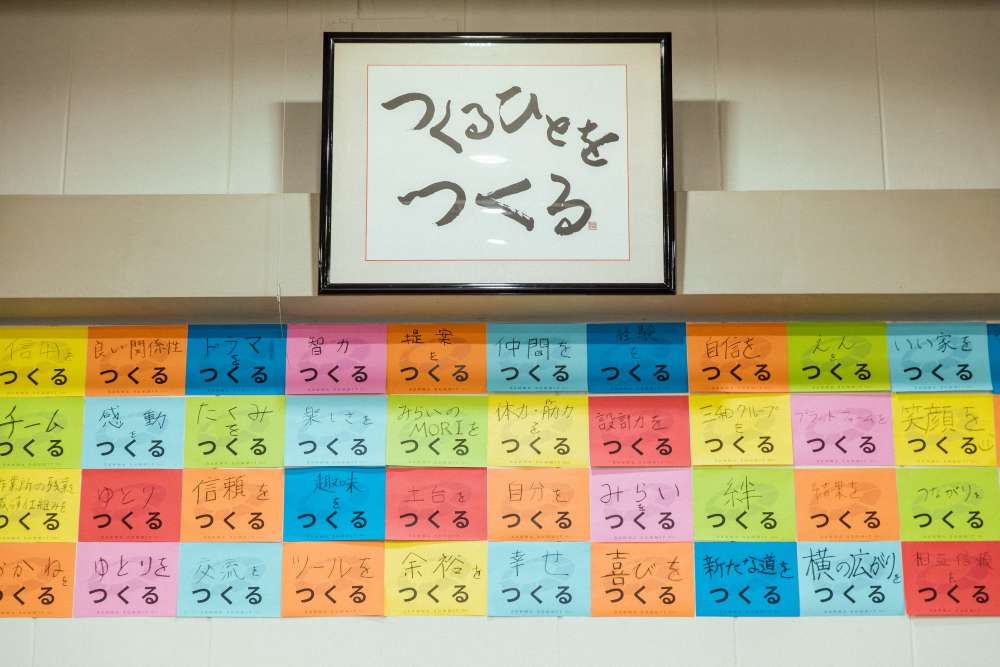 つくるひとを
つくる
信用を
つくる
良い関係性
つくる
ドラマ
を
つくる
智力
つくる
提案
を
つくる
仲間を
つくる
経験
を
つくる
自信を
つくる
ええん
を
つくる
いい家を
つくる
チーム
つくる
感動
を
つくる
たくみ
を
つくる
楽しさを
つくる
みらいの
MORIを
つくる
体力・筋力
を
つくる
設計力を
つくる
グループ
を
つくる
プラットフォームを
つくる
笑顔を
つくる
つくる
ゆとり
つくる
信頼を
つくる
趣味
を
つくる
土台を
つくる
自分を
つくる
みらい
を
つくる
絆
つくる
結果を
つくる
つながりを
つくる
おかねを
つくる
ゆとりを
つくる
交流を
つくる
ツールを
つくる
余裕を
つくる
幸せ
つくる
喜びを
つくる
新たな道を
つくる
横の広がりを
つくる
相互信頼
を
つくる